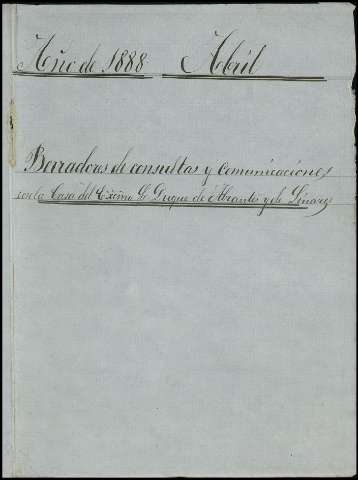 Año de 1888 Abril
Borradores de consultas y comunicaciones
con la Casa del Excmo Sr Duque de Abrantes y de Linares